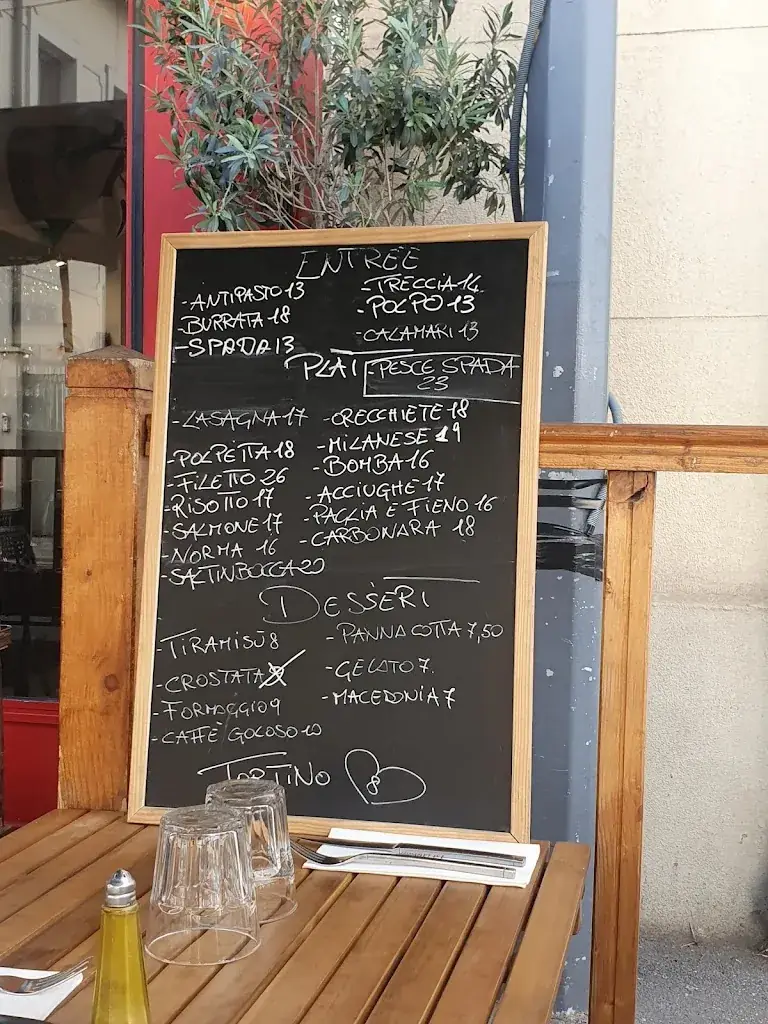 ENTRÉE
-ANTIPASTO 13
-BURRATA 18
-SPADA 13
-TRECCIA 14
-POLPO 13
-CALAMARI 13
PLAT
-PESCE SPADA
23
-LASAGNA 17
-POLPETTA 18
-FILETTO 26
-RISOTTO 17
-SALMONE 17
-NORMA 16
-SALTINBOCCA 20
-ORECCHIETE 18
-MILANESE 19
-BOMBA 16
-ACCIUGHE 17
-PAGLIA E FIENO 16
-CARBONARA 18
DESSERT
-TIRAMISÙ 8
-CROSTATA
-FORMAGGIO 9
-CAFFÈ GOLOSO 10
-PANNA COTTA 7,50
-GELATO 7.
-MACEDONIA 7
TORTINO 8